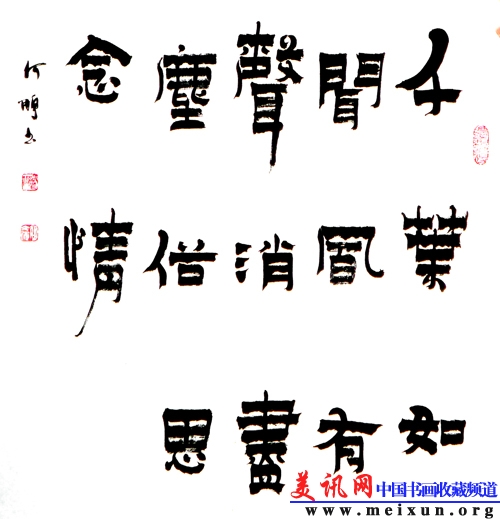 千葉如
聞風有
聲消盡
塵俗思
念情
何鵬书
美讯网 中国书画收藏频道
www.meixun.org